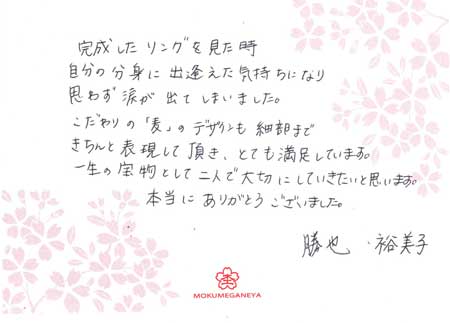 完成したリングを見た時
自分の分身に出逢えた気持ちになり
思わず涙が出てしまいました。
こだわりの「麦」のデザインも細部まで
きちんと表現して頂き、とても満足しています。
一生の宝物として二人で大切にしていきたいと思います。
本当にありがとうございました。
勝也・裕美子
MOKUMEGANEYA